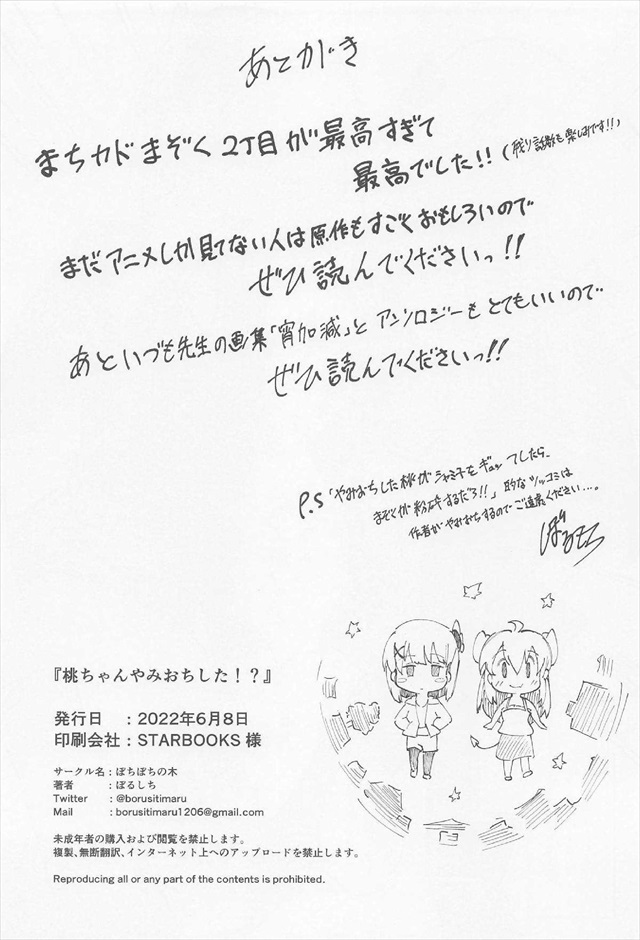 あとがき
まちカドまぞく2丁目が最高すぎて
最高でした!!(残り話数も楽しみです!!)
まだアニメしか見てない人は原作もすごくおもしろいので
ぜひ読んでくださいっ!!
あといづも先生の画集「宵加減」とアンソロジーもとてもいいので
ぜひ読んでくださいっ!!
P.S「やみおちした桃がシャミ子をギュッてしたら、
まぞくが粉砕するだろ!!」的なツッコミは
作者がやみおちするのでご遠慮ください…。
ぼるしち
『桃ちゃんやみおちした!?』
発行日 :2022年6月8日
印刷会社:STARBOOKS 様
サークル名:ぼちぼちの木
著者 :ぼるしち
Twitter :@borusitimaru
Mail :borusitimaru1206@gmail.com
未成年者の購入および閲覧を禁止します。
複製、無断翻訳、インターネット上へのアップロードを禁止します。
Reproducing all or any part of the contents is prohibited.